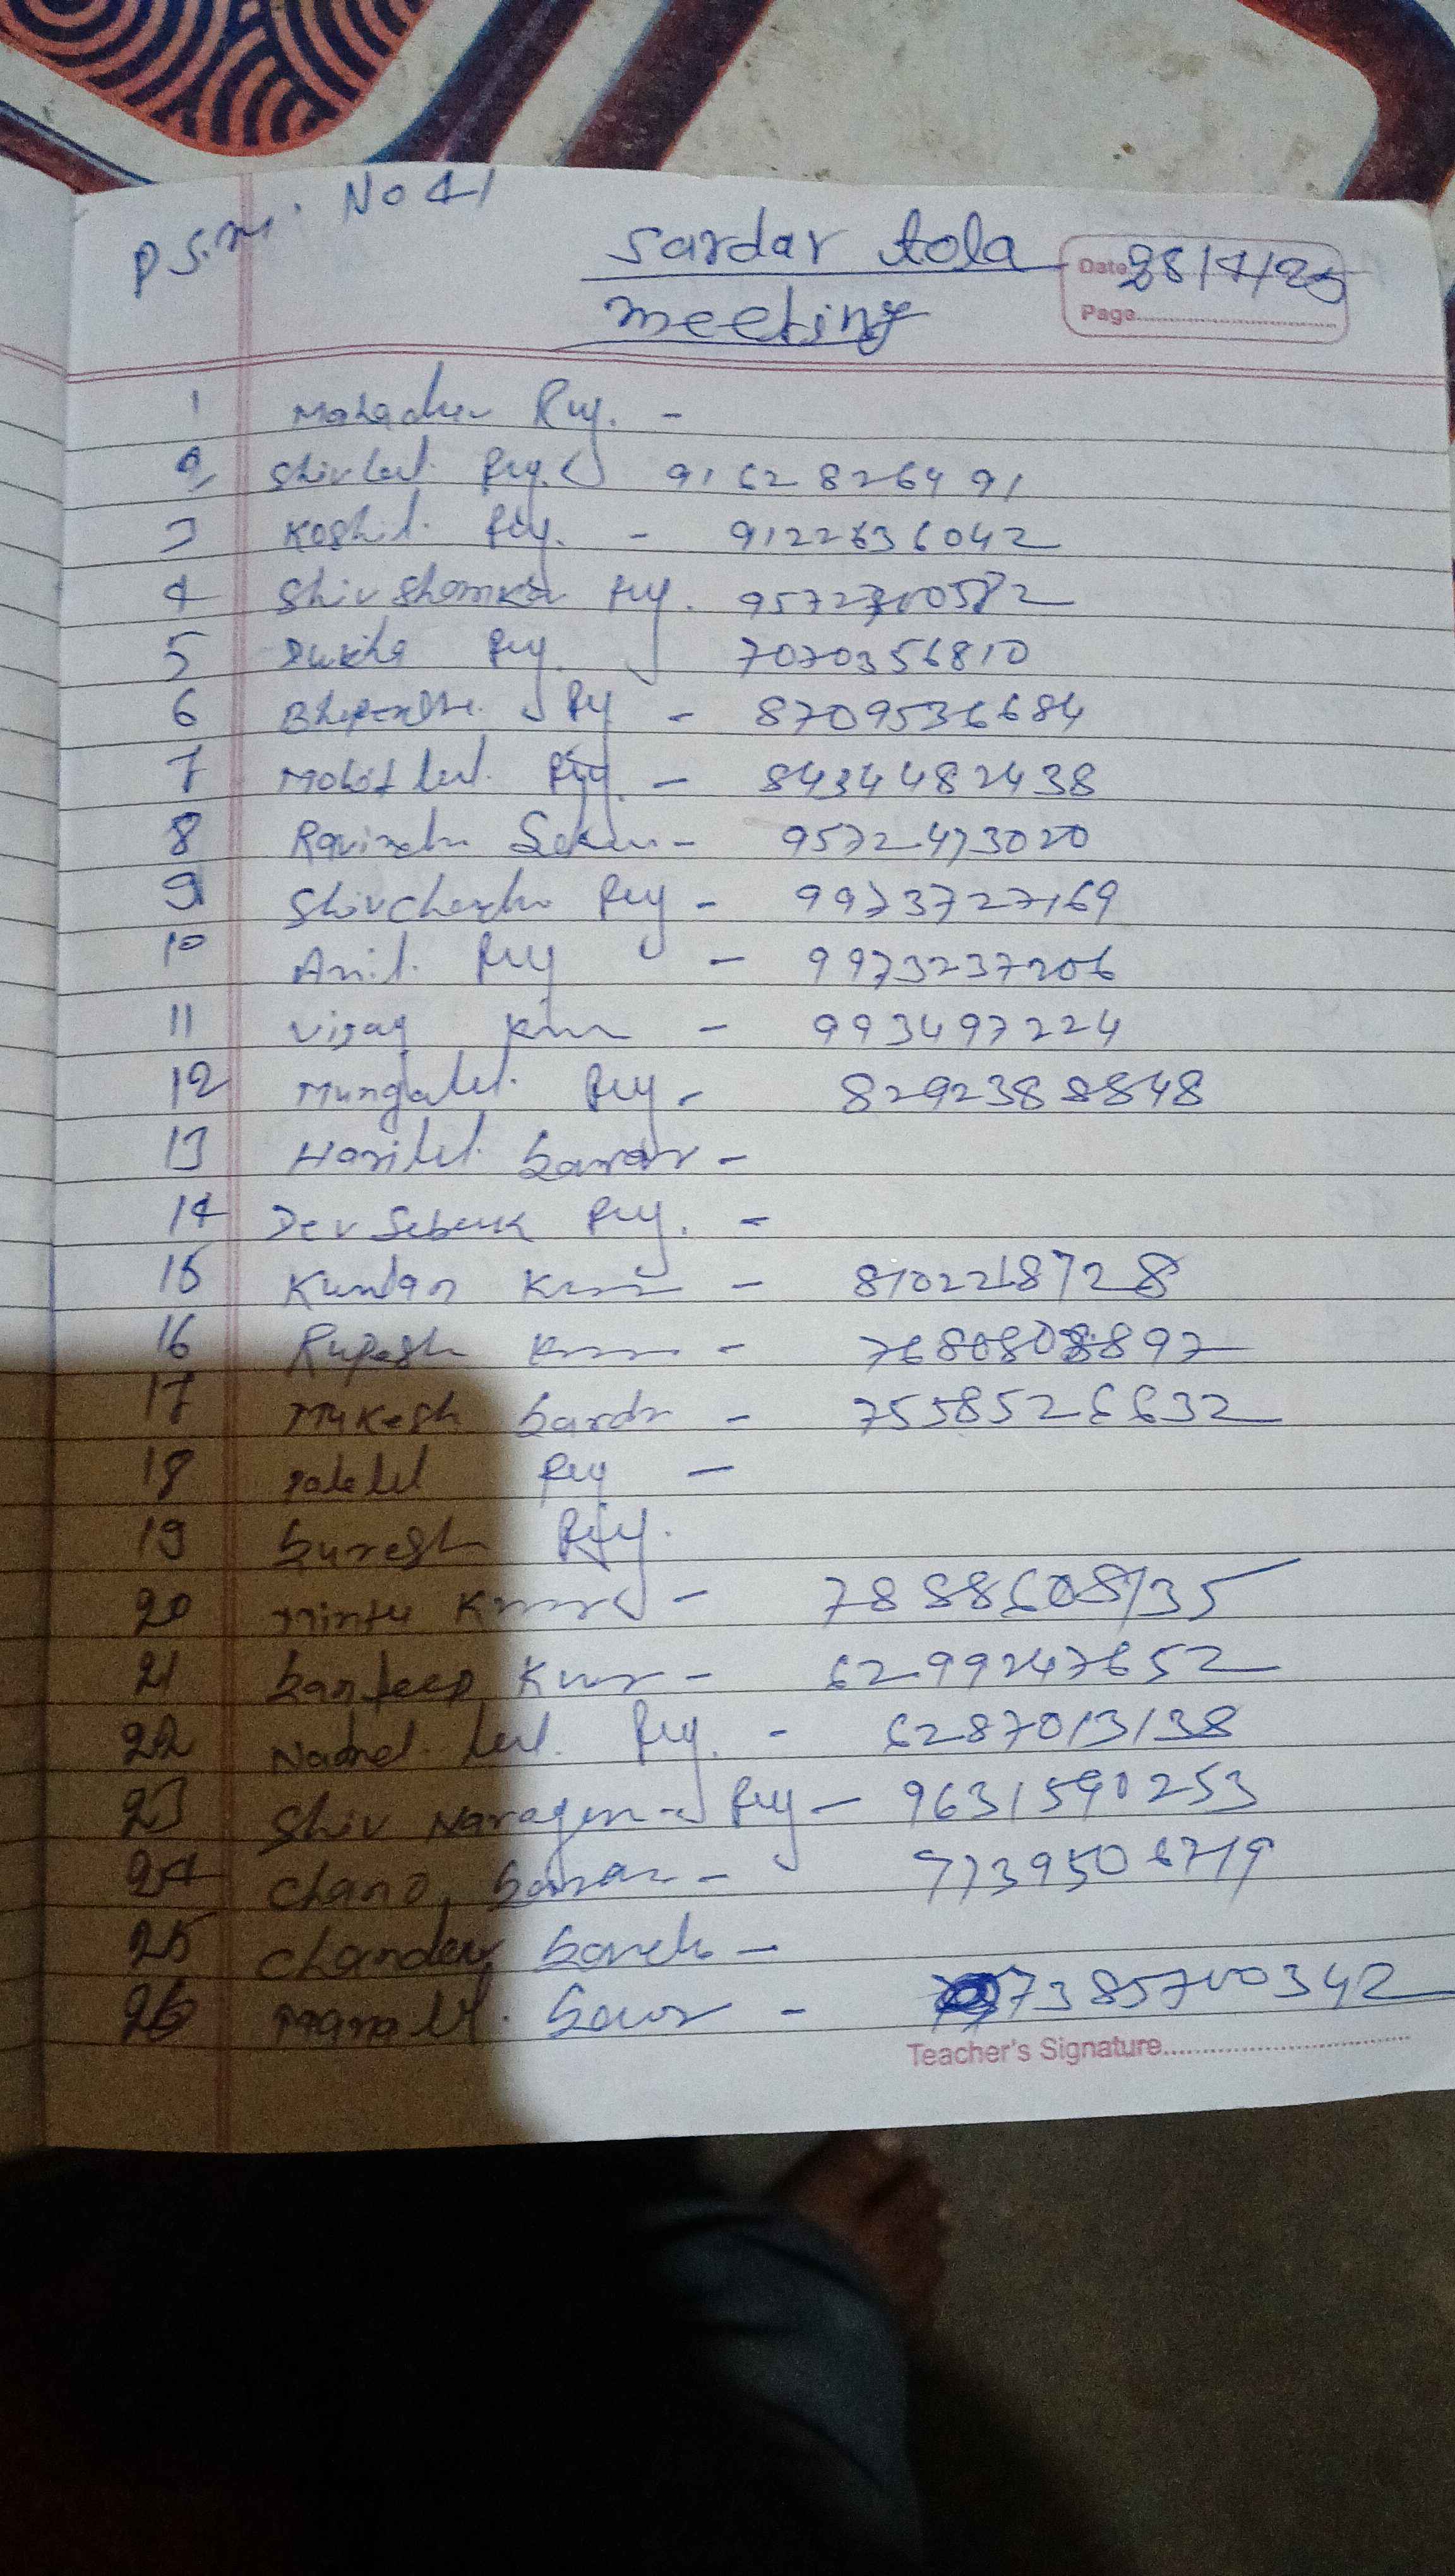 P.S.M. No 41
Sardar tola
meeting
Date 28/4/25
Page
1 Mahadev Rry. -
2 Shivlal. Rry. 9162826491
3 Koshil. Rry. - 9122636042
4 Shivshamkar Rry.
5 Dukha Rry 7070356810
6 Rry - 8709536684
7 Mohit lal. Rry. - 8434482438
8 Ravindra - 9572473020
9 Shivchandra Rry - 9973727169
10 Anil. Rry - 9973237206
11 Vijay Kum - 993497224
12 Mungalal. Rry - 8292388848
13 Harilal. Sardar -
14 Dev Sebeuk Rry. -
15 Kundan Kumar - 8102218728
16 Rupesh Kumar -
17 Mukesh Sardar - 7558526632
18 Rry -
19 Suresh Rry.
20 Mintu Kumar - 7888608135
21 Sandeep Kumar - 6299247652
22 lal. Rry. - 6287013138
23 Shiv Narayan - Rry - 9631590253
24 Chand Sardar - 7739506719
25 Chandev Sardar -
26 - 7385700342
Teacher's Signature